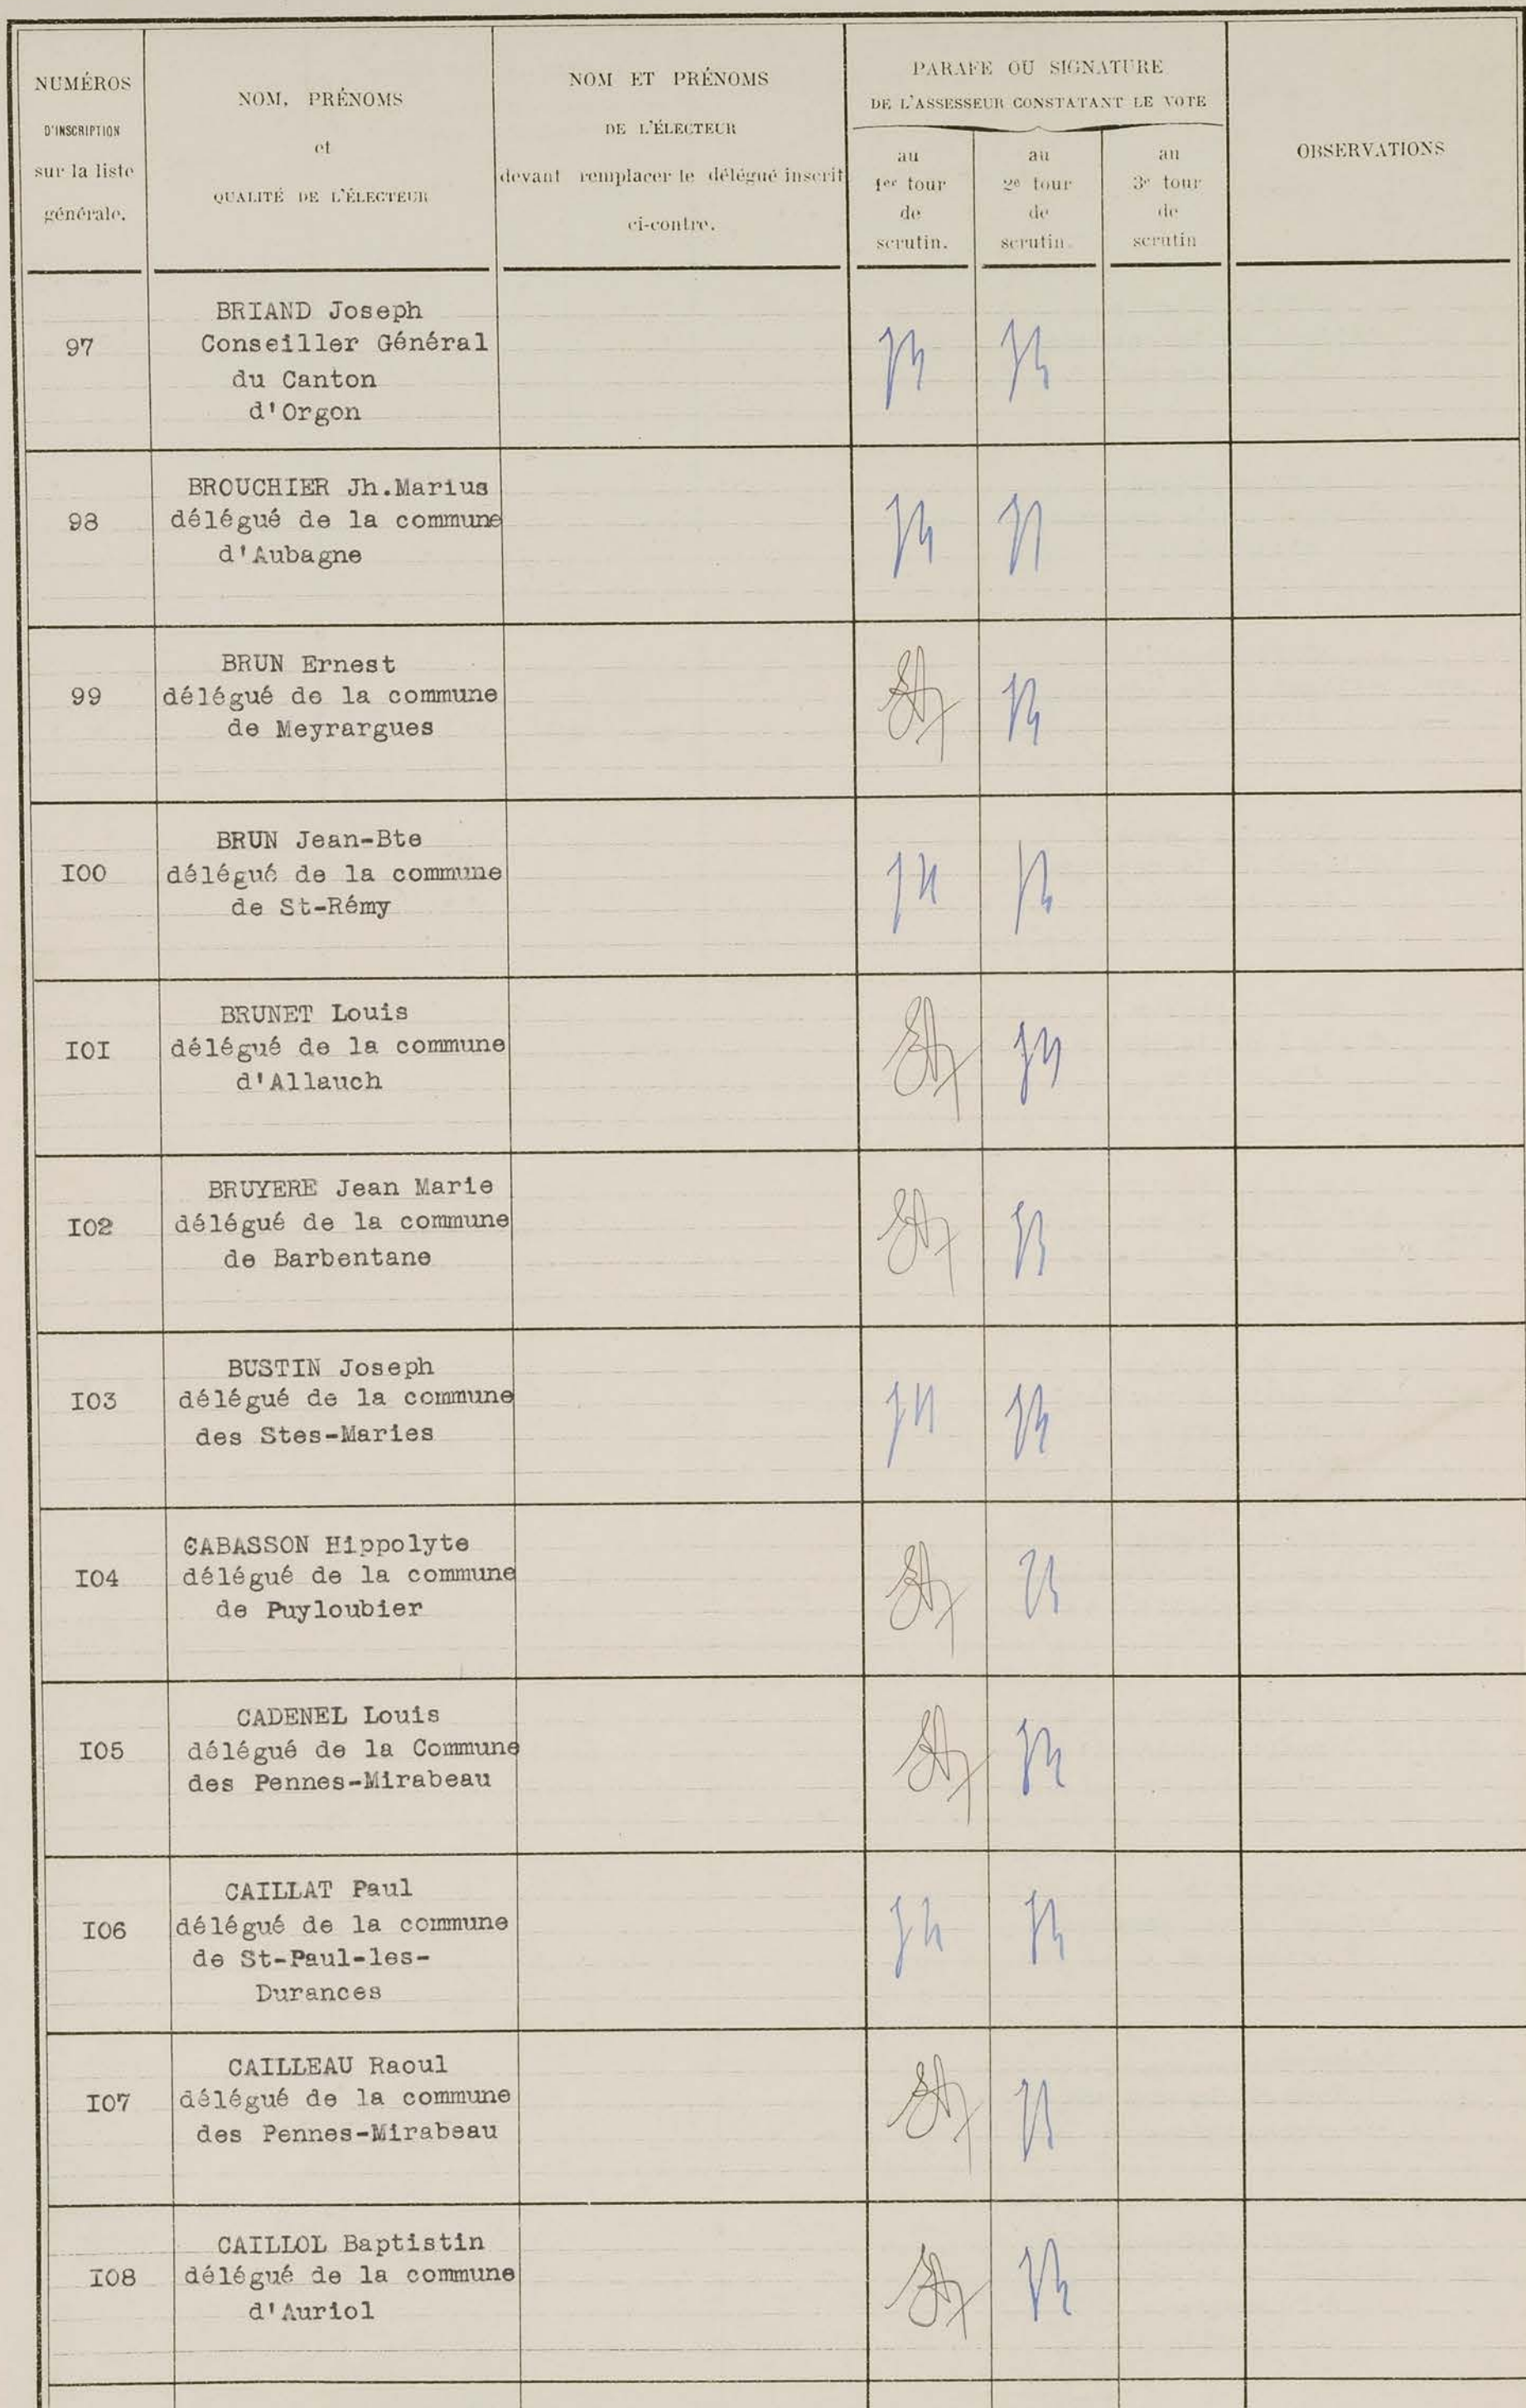 NUMÉROS
D'INSCRIPTION
sur la liste
générale.
NOM, PRÉNOMS
et
QUALITÉ DE L'ÉLECTEUR
NOM ET PRÉNOMS
DE L'ÉLECTEUR
devant remplacer le délégué inscrit
ci-contre.
PARAFE OU SIGNATURE
DE L'ASSESSEUR CONSTATANT LE VOTE
au
1er tour
de
scrutin.
au
2e tour
de
scrutin
au
3e tour
de
scrutin
OBSERVATIONS
97
BRIAND Joseph
Conseiller Général
du Canton
d'Orgon
98
BROUCHIER Jh.Marius
délégué de la commune
d'Aubagne
99
BRUN Ernest
délégué de la commune
de Meyrargues
I00
BRUN Jean-Bte
délégué de la commune
de St-Rémy
I0I
BRUNET Louis
délégué de la commune
d'Allauch
I02
BRUYERE Jean Marie
délégué de la commune
de Barbentane
I03
BUSTIN Joseph
délégué de la commune
des Stes-Maries
I04
CABASSON Hippolyte
délégué de la commune
de Puyloubier
I05
CADENEL Louis
délégué de la Commune
des Pennes-Mirabeau
I06
CAILLAT Paul
délégué de la commune
de St-Paul-les-
Durances
I07
CAILLEAU Raoul
délégué de la commune
des Pennes-Mirabeau
I08
CAILLOL Baptistin
délégué de la commune
d'Auriol